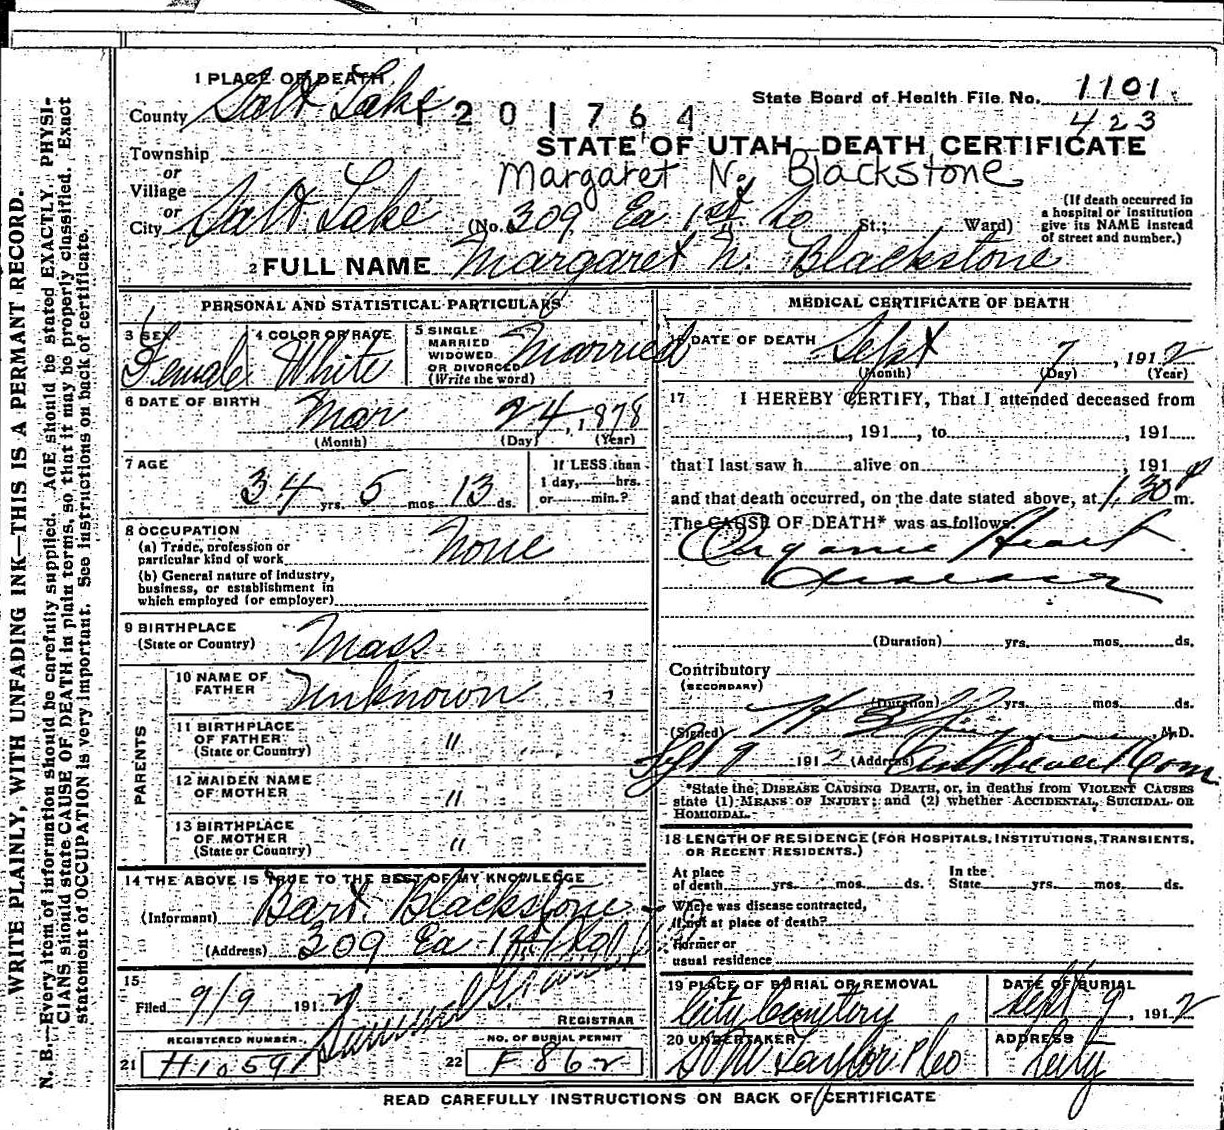 WRITE PLAINLY, WITH UNFADING INK—THIS IS A PERMANT RECORD.
N. B.—Every item of information should be carefully supplied. AGE should be stated EXACTLY. PHYSI-
CIANS should state CAUSE OF DEATH in plain terms, so that it may be properly classified. Exact
statement of OCCUPATION is very important. See instructions on back of certificate.
1 PLACE OF DEATH
County Salt Lake
201764
State Board of Health File No. 1101
423
STATE OF UTAH—DEATH CERTIFICATE
Township
or
Village
Margaret N. Blackstone
or
City Salt Lake (No. 309 Ea 1st So St.; Ward)
(If death occurred in a hospital or institution give its NAME instead of street and number.)
2 FULL NAME Margaret N. Blackstone
PERSONAL AND STATISTICAL PARTICULARS
3 SEX Female
4 COLOR OR RACE White
5 SINGLE MARRIED WIDOWED OR DIVORCED (Write the word) Married
6 DATE OF BIRTH Mar 24, 1878
(Month) (Day) (Year)
7 AGE 34 yrs. 5 mos. 13 ds.
If LESS than 1 day, hrs. or min.?
8 OCCUPATION
(a) Trade, profession or particular kind of work None
(b) General nature of industry, business, or establishment in which employed (or employer)
9 BIRTHPLACE
(State or Country) Mass
PARENTS
10 NAME OF FATHER Unknown
11 BIRTHPLACE OF FATHER (State or Country) "
12 MAIDEN NAME OF MOTHER "
13 BIRTHPLACE OF MOTHER (State or Country) "
14 THE ABOVE IS TRUE TO THE BEST OF MY KNOWLEDGE
(Informant) Bart. Blackstone
(Address) 309 Ea 1st
15
Filed 9/9 1912
REGISTRAR
REGISTERED NUMBER.
21 H10591
NO. OF BURIAL PERMIT
22 F862
MEDICAL CERTIFICATE OF DEATH
DATE OF DEATH Sept 7, 1912
(Month) (Day) (Year)
17 I HEREBY CERTIFY, That I attended deceased from
, 191 , to , 191
that I last saw h alive on , 191
and that death occurred, on the date stated above, at 1.30 P m.
The CAUSE OF DEATH* was as follows:
Organic Heart
disease
(Duration) yrs. mos. ds.
Contributory
(SECONDARY)
(Duration) yrs. mos. ds.
(Signed) M.D.
Sept 9 1912 (Address)
*State the DISEASE CAUSING DEATH, or, in deaths from VIOLENT CAUSES
state (1) MEANS OF INJURY; and (2) whether ACCIDENTAL, SUICIDAL OR
HOMICIDAL.
18 LENGTH OF RESIDENCE (FOR HOSPITALS, INSTITUTIONS, TRANSIENTS,
OR RECENT RESIDENTS.)
At place of death yrs. mos. ds. In the State yrs. mos. ds.
Where was disease contracted,
if not at place of death?
Former or
usual residence
19 PLACE OF BURIAL OR REMOVAL
City Cemetery
DATE OF BURIAL
Sept 9, 1912
20 UNDERTAKER
Taylor & Co
ADDRESS
City
READ CAREFULLY INSTRUCTIONS ON BACK OF CERTIFICATE